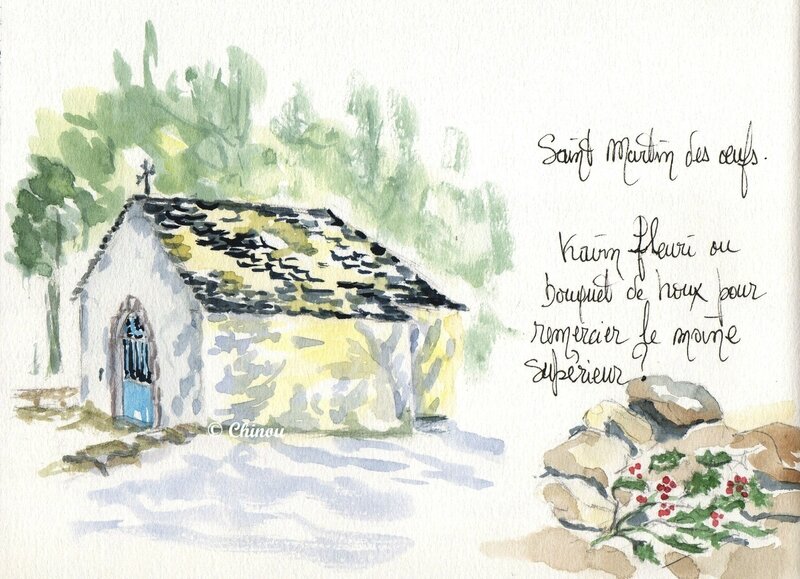 Saint Martin des œufs.
Kairn fleuri ou
bouquet de houx pour
remercier le moine
supérieur ?
© Chinou